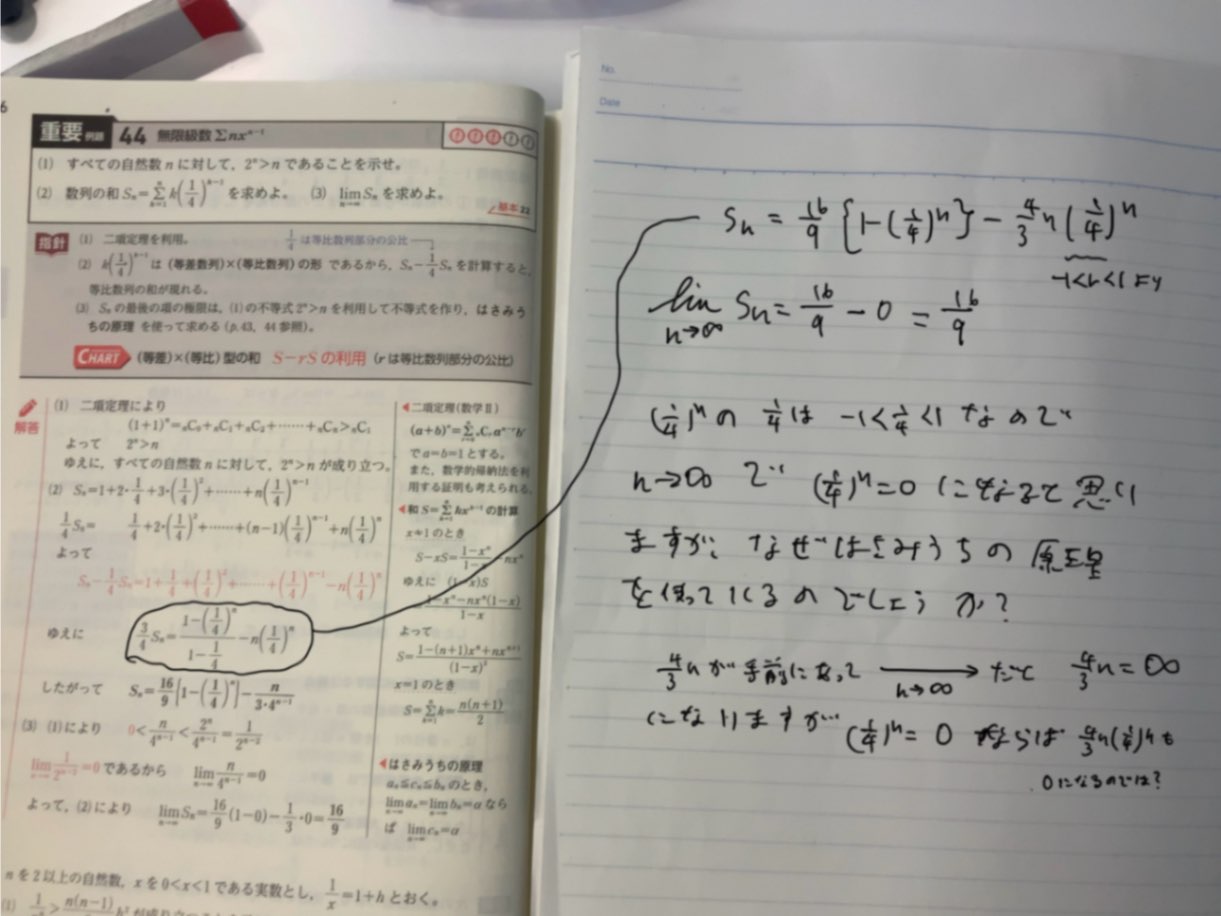 6
重要 例題 44 無限級数 Σnxⁿ⁻¹
(1) すべての自然数 n に対して，2ⁿ>n であることを示せ。
(2) 数列の和 Sₙ=Σₖ₌₁ⁿ k(1/4)ᵏ⁻¹ を求めよ。 (3) lim n→∞ Sₙ を求めよ。
基本22
指針 (1) 二項定理を利用。 1/4 は等比数列部分の公比
(2) k(1/4)ᵏ⁻¹ は (等差数列)×(等比数列) の形 であるから，Sₙ−1/4Sₙ を計算すると，
等比数列の和が現れる。
(3) Sₙ の最後の項の極限は，(1)の不等式 2ⁿ>n を利用して不等式を作り，はさみう
ちの原理 を使って求める (p.43, 44 参照)。
CHART (等差)×(等比) 型の和 S−rS の利用 (r は等比数列部分の公比)
解答
(1) 二項定理により
(1+1)ⁿ=ₙC₀+ₙC₁+ₙC₂+……+ₙCₙ>ₙC₁
よって 2ⁿ>n
ゆえに，すべての自然数 n に対して，2ⁿ>n が成り立つ。
(2) Sₙ=1+2・1/4+3・(1/4)²+……+n(1/4)ⁿ⁻¹
1/4Sₙ= 1/4+2・(1/4)²+……+(n−1)(1/4)ⁿ⁻¹+n(1/4)ⁿ
よって
Sₙ−1/4Sₙ=1+1/4+(1/4)²+……+(1/4)ⁿ⁻¹−n(1/4)ⁿ
ゆえに 3/4Sₙ=(1−(1/4)ⁿ)/(1−1/4)−n(1/4)ⁿ
したがって Sₙ=16/9{1−(1/4)ⁿ}−n/(3・4ⁿ⁻¹)
(3) (1)により 0<n/4ⁿ⁻¹<2ⁿ/4ⁿ⁻¹=1/2ⁿ⁻²
lim n→∞ 1/2ⁿ⁻²=0 であるから lim n→∞ n/4ⁿ⁻¹=0
よって，(2)により lim n→∞ Sₙ=16/9(1−0)−1/3・0=16/9
◀二項定理(数学Ⅱ)
(a+b)ⁿ=Σ ₙCᵣaⁿ⁻ʳbʳ
で a=b=1 とする。
また，数学的帰納法を利
用する証明も考えられる。
◀和 S=Σₖ₌₁ⁿ kxᵏ⁻¹ の計算
x≠1 のとき
S−xS=(1−xⁿ)/(1−x)−nxⁿ
ゆえに (1−x)S
=(1−xⁿ−nxⁿ(1−x))/(1−x)
よって
S=(1−(n+1)xⁿ+nxⁿ⁺¹)/(1−x)²
x=1 のとき
S=Σₖ₌₁ⁿ k=n(n+1)/2
◀はさみうちの原理
aₙ≦cₙ≦bₙ のとき，
lim n→∞ aₙ=lim n→∞ bₙ=α なら
ば lim n→∞ cₙ=α
n を 2 以上の自然数，x を 0<x<1 である実数とし，1/x=1+h とおく。
No.
Date
Sₙ = 16/9 {1−(1/4)ⁿ} − 4/3 n (1/4)ⁿ
−1<r<1 より
lim n→∞ Sₙ = 16/9 − 0 = 16/9
(1/4)ⁿ の 1/4 は −1<1/4<1 なので
n→∞ で (1/4)ⁿ=0 になると思い
ますが、なぜはさみうちの原理
を使っているのでしょうか?
4/3n が手前にあって n→∞ だと 4/3n=∞
になりますが (1/4)ⁿ=0 ならば 4/3n(1/4)ⁿも
0になるのでは?